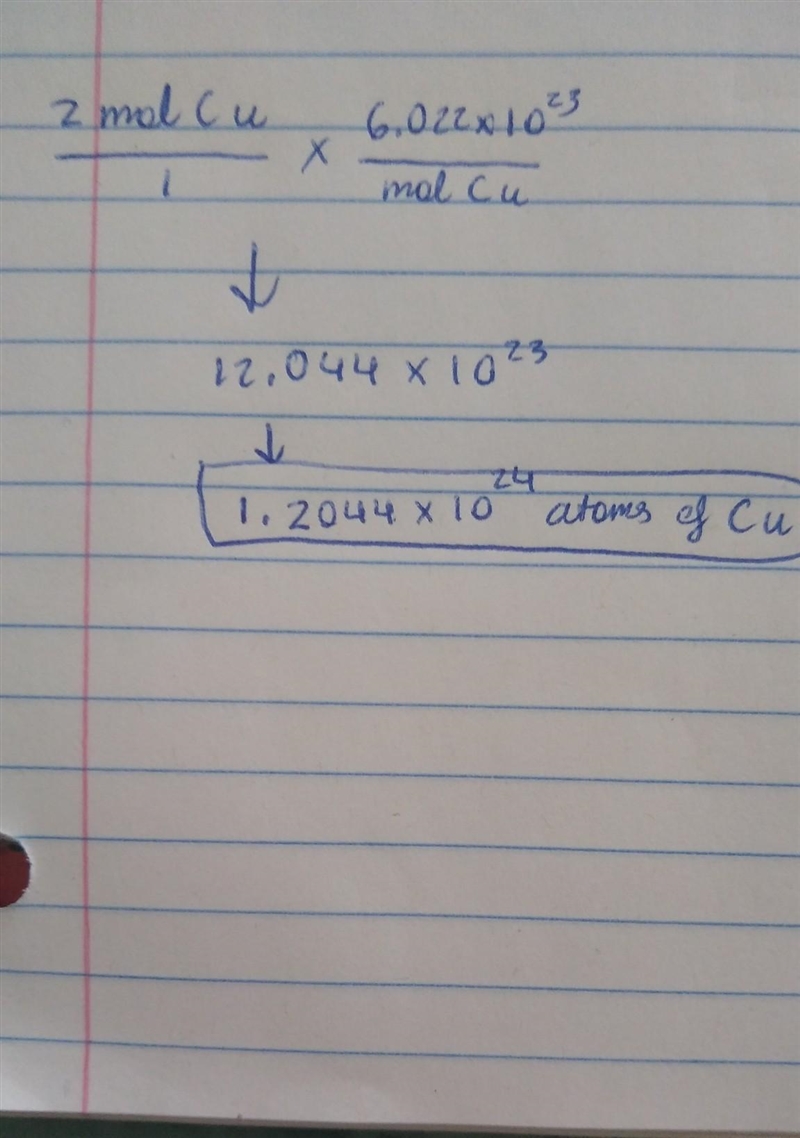 2 mol Cu / 1 × 6.022×10²³ / mol Cu
↓
12.044 × 10²³
↓
1.2044 × 10²⁴ atoms of Cu